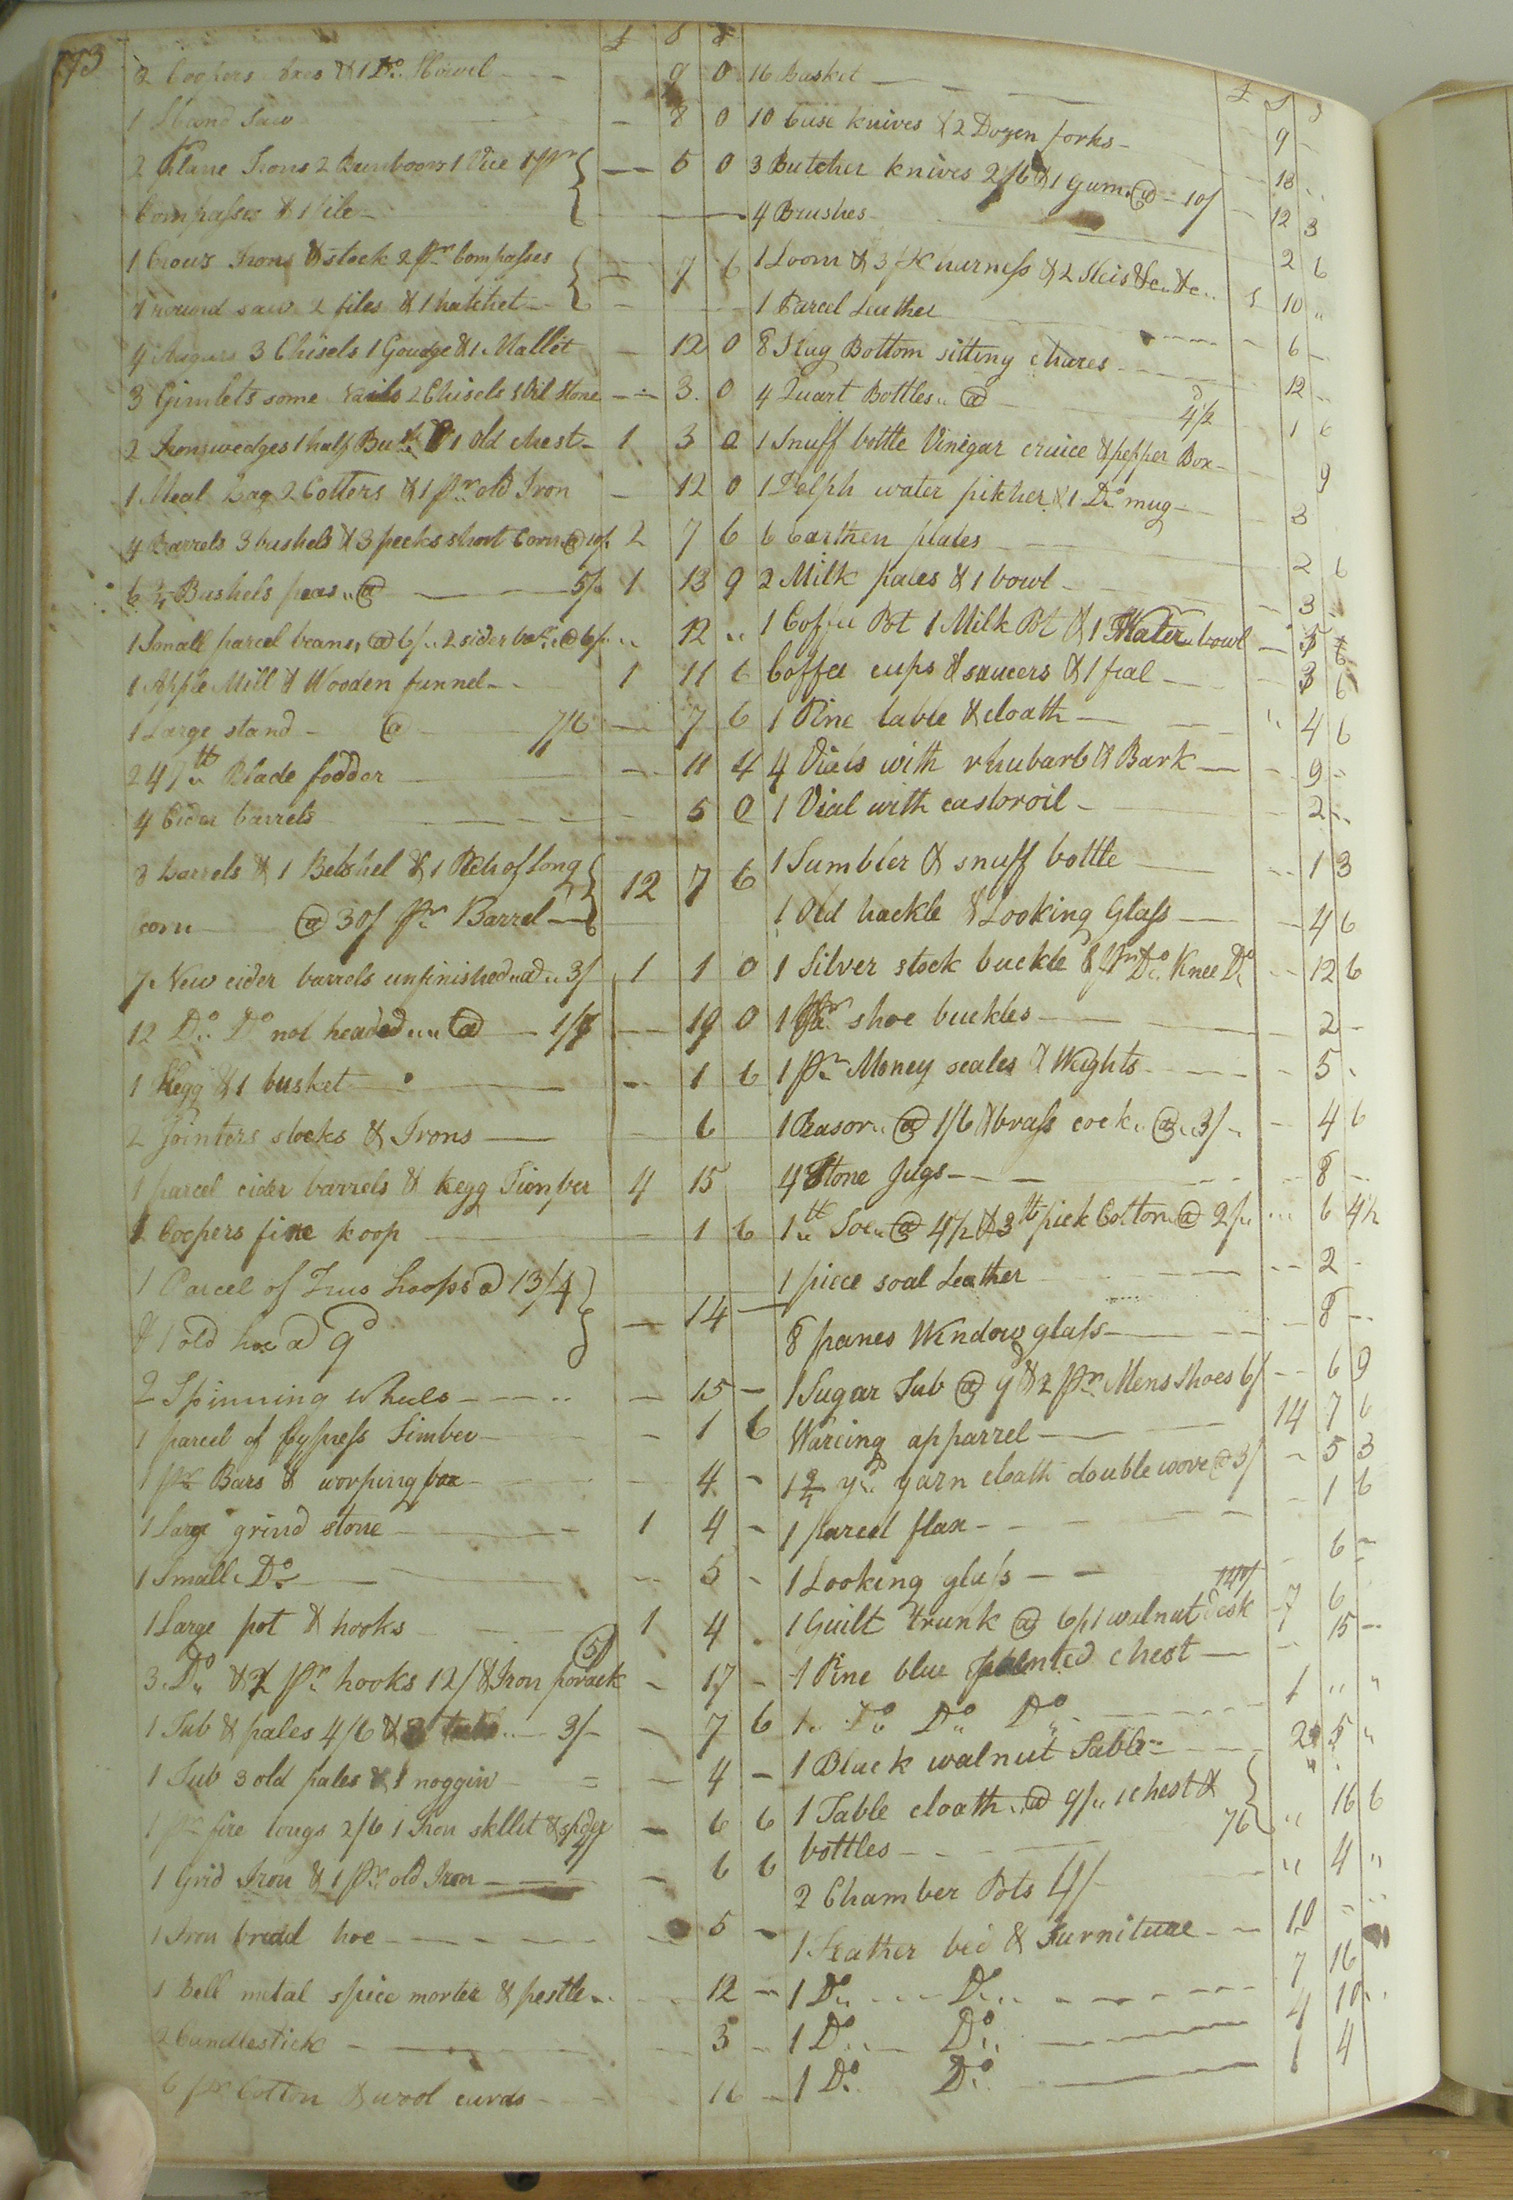 173
£ S d
2 Coopers axes & 1 Do. Howel 9 0
1 Hand Saw 8 0
2 Plane Irons 2 1 Vice 1 pr 5 0
Compasses & 1 file
1 Crows Irons & stock 2 pr Compasses 7 6
1 round saw 2 files & 1 hatchet
4 Augurs 3 Chisels 1 Goudge & 1 Mallet 12 0
3 Gimlets some nails 2 Chisels 1 Oil Stone 3 0
2 Iron wedges 1 half Bu. & 1 old chest 1 3 0
1 Meal Bag 2 Cotters & 1 pr old Iron 12 0
4 Barrels 3 bushels & 3 pecks short Corn @ 10/ 2 7 6
6 3/4 Bushels peas @ 5/ 1 13 9
1 Small parcel beans @ 6/ 2 sider @ 6/ 12
1 Apple Mill & Wooden funnel 1 11 6
1 Large stand @ 7/6 7 6
247 lb Blade fodder 11 4
4 Cider barrels 5 0
8 barrels & 1 Beushel & 1 Peck of long
corn @ 30/ pr Barrel 12 7 6
7 New cider barrels unfinished ad 3/ 1 1 0
12 Do Do not headed @ 1/7 19 0
1 Kegg & 1 basket 1 6
2 Jointers stocks & Irons 6
1 parcel cider barrels & kegg Timber 4 15
1 Coopers fire hoop 1 6
1 Parcel of Trus hoops @ 13/4
& 1 old hoe @ 9d 14
2 Spinning Wheels 15
1 parcel of Cypress Timber 1 6
1 pr Bars & worping box 4
1 Large grind stone 1 4
1 Small Do 5
1 Large pot & hooks 1 4
5/
3 Do & 2 pr hooks 12/ & Iron potrack 17
1 Tub & pales 4/6 & 3/ 7 6
1 Tub 3 old pales & 1 noggin 4
1 pr fire tongs 2/6 1 Iron skllit & spider 4/ 6 6
1 Grid Iron & 1 pr old Iron 6 6
1 Iron bredd hoe 5
1 Bell metal spice morter & pestle 12
2 Candlestick 3
6 pr Cotton & wool cards 16
£ S d
16 Basket 9
10 Case knives & 2 Dozen forks 18
3 Butcher knives 2/6 & 1 @ 10/ 12 3
4 Brushes 2 6
1 Loom & 3 pr harness & 2 Sleis &c &c 5 10
1 Parcel Leather 6
8 Slug Bottom sitting chares 12
4 Quart Bottles @ 4 1/2 d 1 6
1 Snuff bottle Vinigar cruice & pepper Box 9
1 Delph water pitcher & 1 Do mug 3
6 Earthen plates 2 6
2 Milk pales & 1 bowl 3
1 Coffee Pot 1 Milk Pot & 1 Water bowl 5 6
Coffee cups & saucers & 1 3 6
1 Pine table & cloath 4 6
4 Vials with rhubarb & Bark 9
1 Vial with castoroil 2
1 Tumbler & snuff bottle 1 3
1 Old hackle & Looking Glass 4 6
1 Silver stock buckle & pr Do Knee Do 12 6
1 pr shoe buckles 2
1 pr Money scales & Weights 5
1 Rasor @ 1/6 & brass cock @ 3/ 4 6
4 Stone Jugs 8
1 lb @ 4 1/2 & 3 lb pick Cotton @ 2/ 6 4 1/2
1 piece soal Leather 2
8 panes Window glass 8
1 Sugar Tub @ 9d & 2 pr Mens Shoes 6/ 6 9
Wareing apparrel 14 7 6
1 3/4 yd yarn cloath double wove @ 3/ 5 3
1 parcel flax 1 6
1 Looking glass 6
1 Guilt trunk @ 6/ 1 walnut desk 140/ 7 6
1 Pine blue painted chest 15
1 Do Do Do 1
1 Black walnut Table 2 5
1 Table cloath @ 9/ 1 chest &
bottles 7/6 16 6
2 Chamber Pots 4/ 4
1 Feather bed & Furniture 10
1 Do Do 7 16
1 Do Do 4 10
1 Do Do 1 4